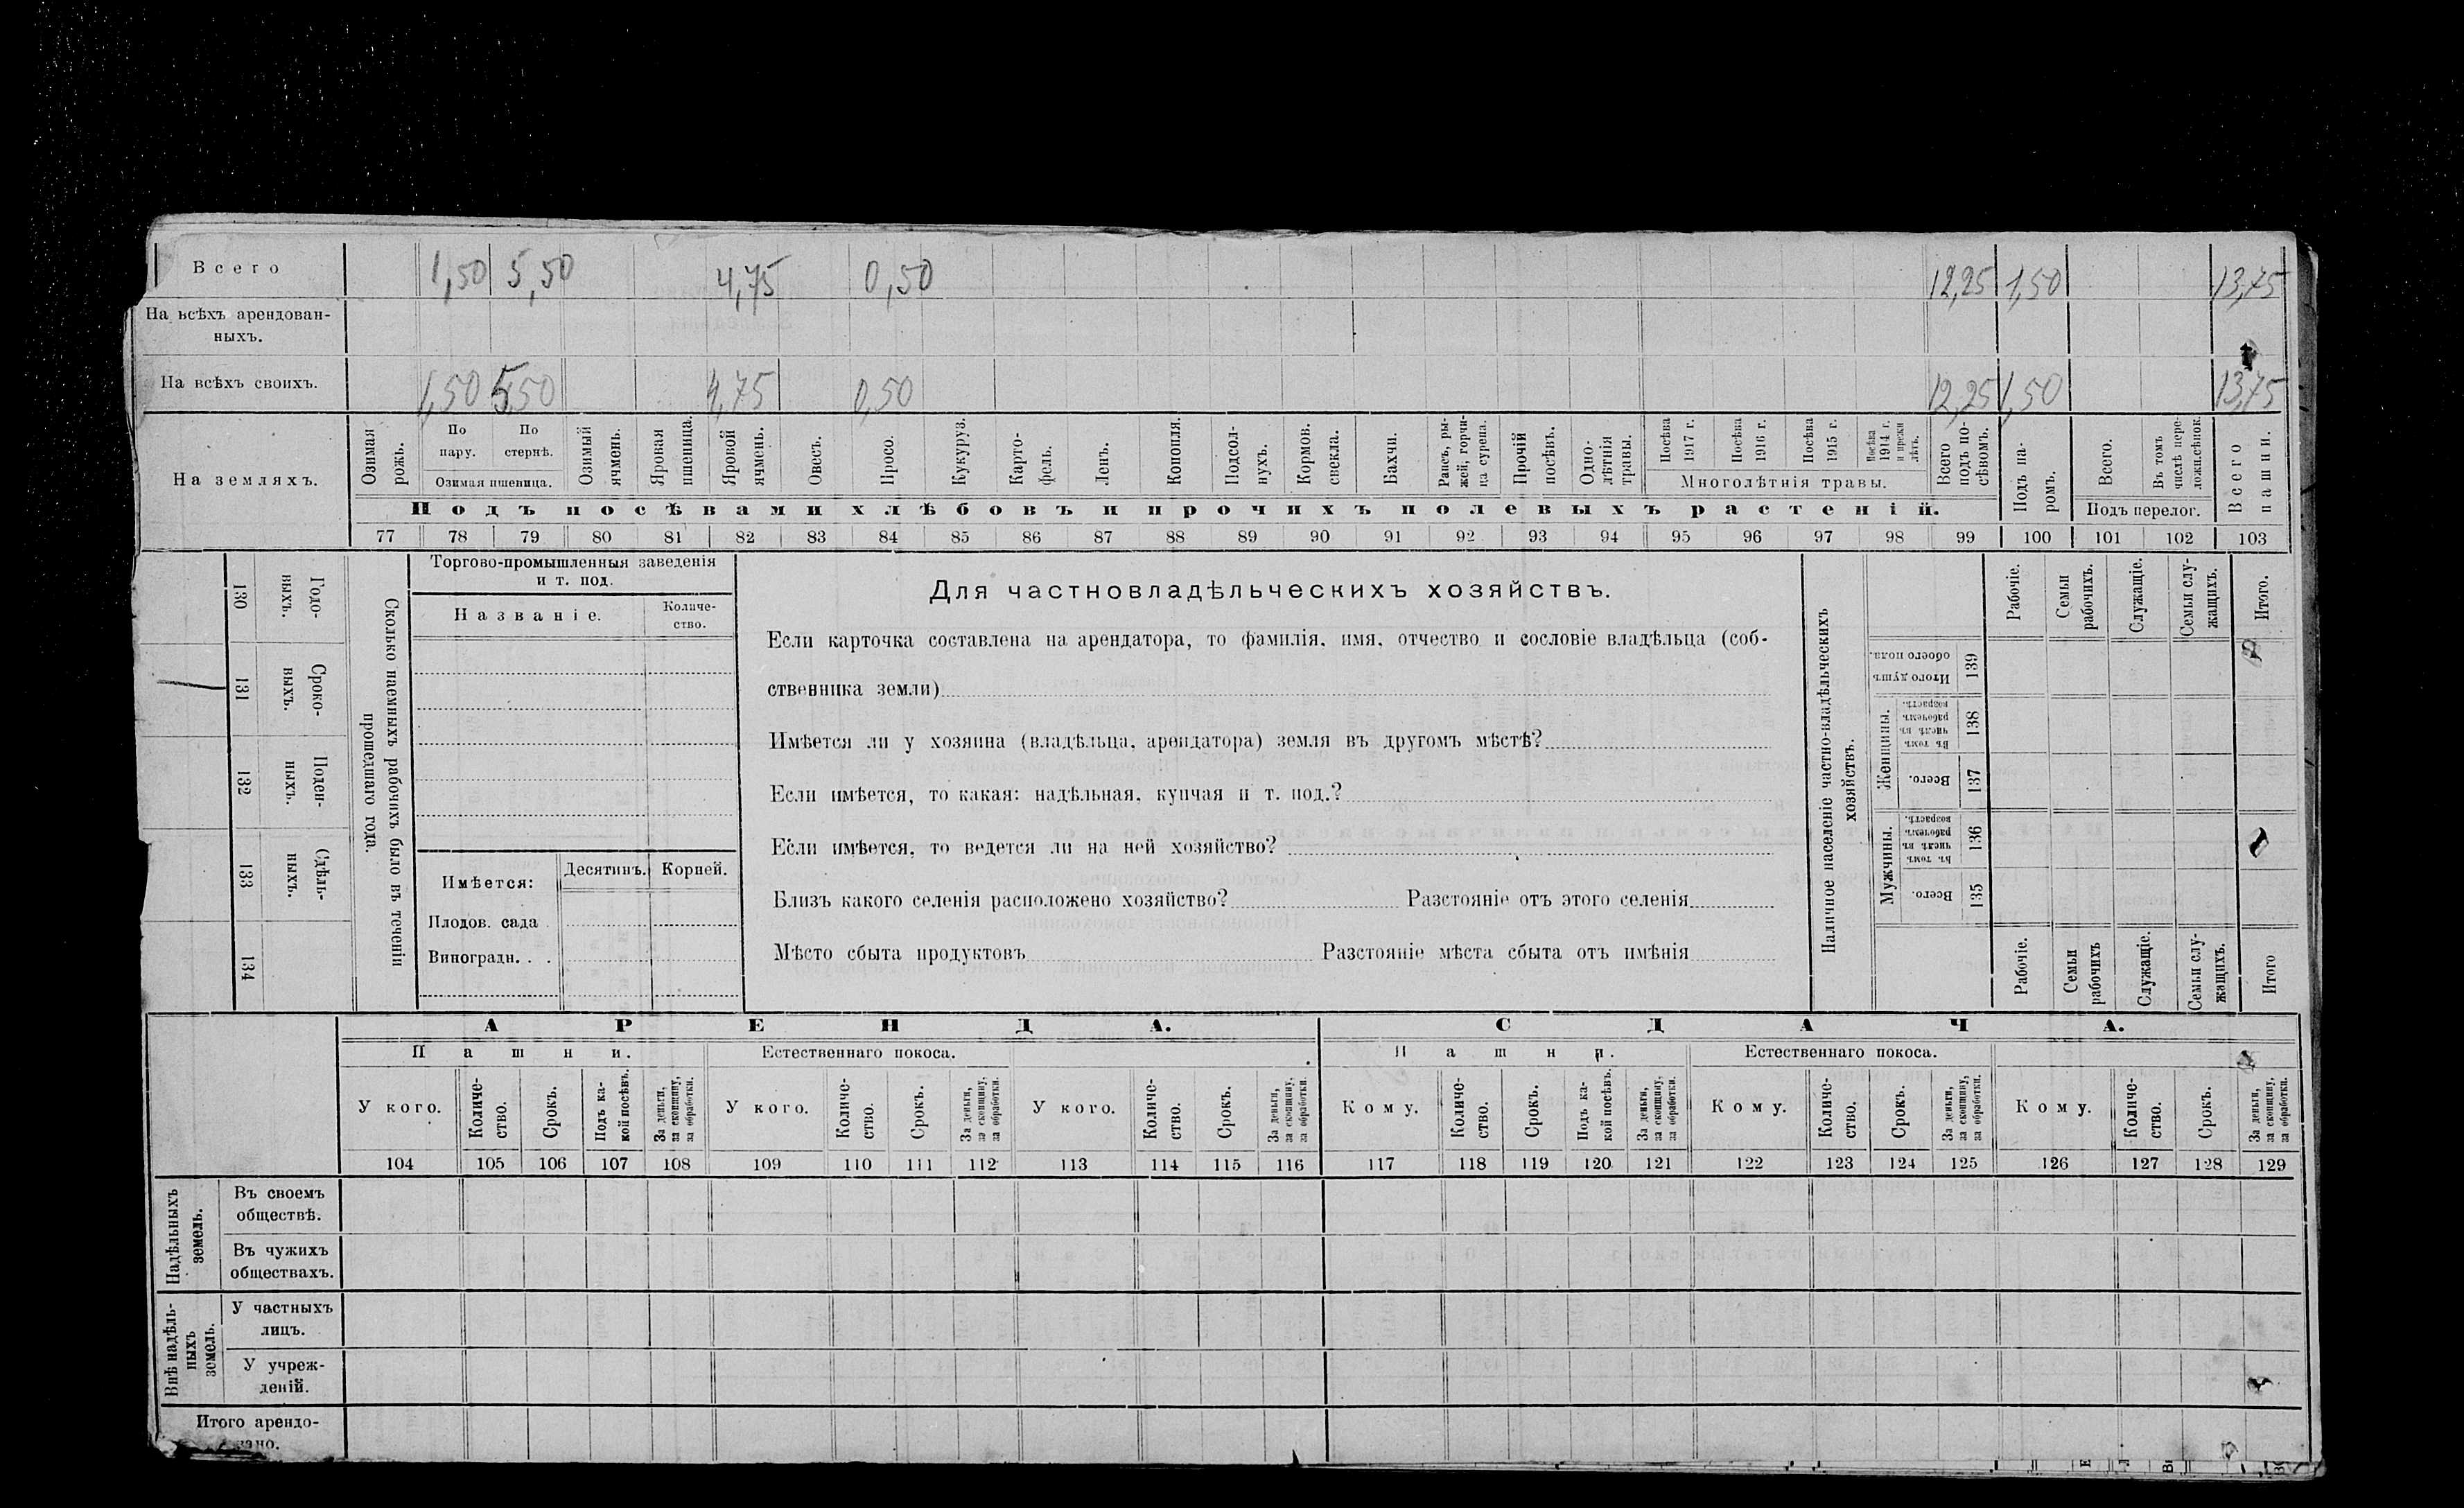 Всего 1,50 5,50 4,75 0,50 12,25 1,50 13,75
На всѣхъ арендован-
ныхъ.
На всѣхъ своихъ. 1,50 5,50 4,75 0,50 12,25 1,50 13,75
На земляхъ.
Озимая рожь.
По пару.
По стернѣ.
Озимая пшеница.
Озимый ячмень.
Яровая пшеница.
Яровой ячмень.
Овесъ.
Просо.
Кукуруз.
Карто-
фель.
Ленъ.
Конопля.
Подсол-
нухъ.
Кормов. свекла.
Бахчи.
Рапсъ, ры-
жей, горчи-
ца сурепа.
Прочій посѣвъ.
Одно-
лѣтнія травы.
Посѣва 1917 г.
Посѣва 1916 г.
Посѣва 1915 г.
Посѣва 1914 г.
Многолѣтнія травы.
Всего подъ по-
сѣвомъ.
Подъ па-
ромъ.
Всего.
Въ томъ числѣ пере-
Подъ перелог.
Всего пашни.
Подъ посѣвами хлѣбовъ и прочихъ полевыхъ растеній.
77 78 79 80 81 82 83 84 85 86 87 88 89 90 91 92 93 94 95 96 97 98 99 100 101 102 103
130 Годо-
выхъ.
131 Сроко-
выхъ.
132 Поден-
ныхъ.
133 Сдѣль-
ныхъ.
134
Сколько наемныхъ рабочихъ было въ теченіи
прошедшаго года.
Торгово-промышленныя заведенія
и т. под.
Названіе.
Количе-
ство.
Имѣется:
Десятинъ. Корней.
Плодов. сада .
Виноградн. . .
Для частновладѣльческихъ хозяйствъ.
Если карточка составлена на арендатора, то фамилія, имя, отчество и сословіе владѣльца (соб-
ственника земли)
Имѣется ли у хозяина (владѣльца, арендатора) земля въ другомъ мѣстѣ?
Если имѣется, то какая: надѣльная, купчая и т. под.?
Если имѣется, то ведется ли на ней хозяйство?
Близъ какого селенія расположено хозяйство? Разстояніе отъ этого селенія
Мѣсто сбыта продуктовъ Разстояніе мѣста сбыта отъ имѣнія
Наличное населеніе частно-владѣльческихъ
хозяйствъ.
Рабочіе.
Семьи рабочихъ.
Служащіе.
Семьи слу-
жащихъ.
Итого.
Итого душъ
обоего пола.
139
Женщины.
Въ томъ
числѣ въ
рабочемъ
возрастѣ.
138
Всего.
137
Мужчины.
Въ томъ
числѣ въ
рабочемъ
возрастѣ.
136
Всего.
135
Рабочіе.
Семьи рабочихъ
Служащіе.
Семьи слу-
жащихъ.
Итого
АРЕНДА. СДАЧА.
Пашни. Естественнаго покоса. Пашни. Естественнаго покоса.
У кого.
Количе-
ство.
Срокъ.
Подъ ка-
кой посѣвъ.
За деньги,
за скопщину,
за обработки.
У кого.
Количе-
ство.
Срокъ.
За деньги,
за скопщину,
за обработки.
У кого.
Количе-
ство.
Срокъ.
За деньги,
за скопщину,
за обработки.
Кому.
Количе-
ство.
Срокъ.
Подъ ка-
кой посѣвъ.
За деньги,
за скопщину,
за обработки.
Кому.
Количе-
ство.
Срокъ.
За деньги,
за скопщину,
за обработки.
Кому.
Количе-
ство.
Срокъ.
За деньги,
за скопщину,
за обработки.
104 105 106 107 108 109 110 111 112 113 114 115 116 117 118 119 120 121 122 123 124 125 126 127 128 129
Надѣльныхъ
земель.
Въ своемъ
обществѣ.
Въ чужихъ
обществахъ.
Внѣ надѣль-
ныхъ
земель.
У частныхъ
лицъ.
У учреж-
деній.
Итого арендо-
вано.